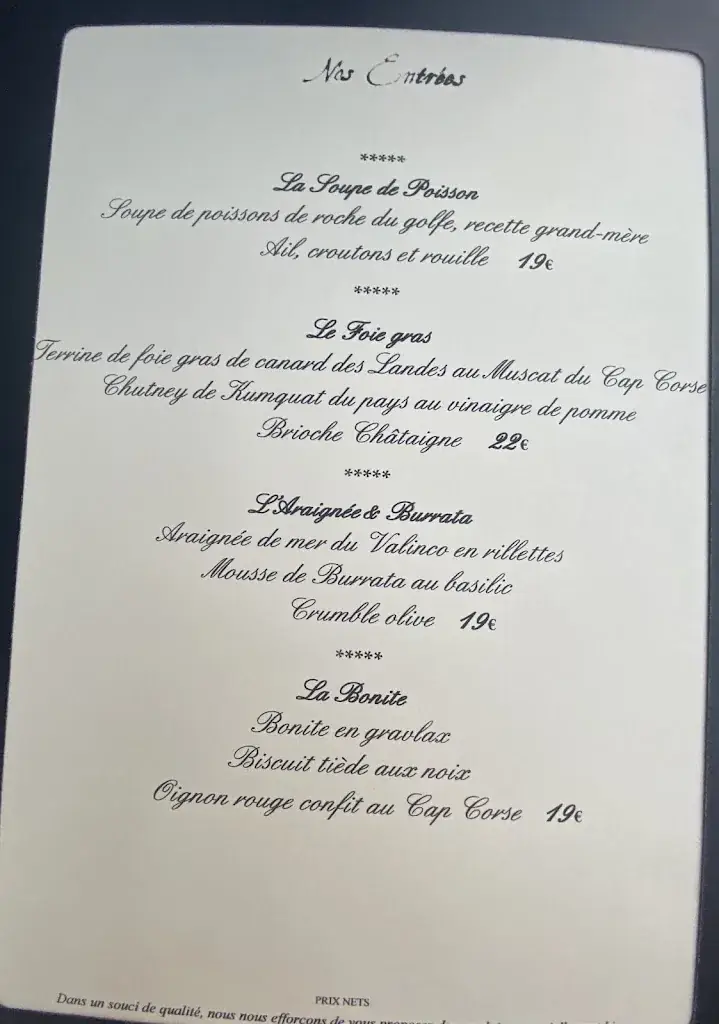 Nos Entrées
*****
La Soupe de Poisson
Soupe de poissons de roche du golfe, recette grand-mère
Ail, croutons et rouille 19€
*****
Le Foie gras
Terrine de foie gras de canard des Landes au Muscat du Cap Corse
Chutney de Kumquat du pays au vinaigre de pomme
Brioche Châtaigne 22€
*****
L'Araignée & Burrata
Araignée de mer du Valinco en rillettes
Mousse de Burrata au basilic
Crumble olive 19€
*****
La Bonite
Bonite en gravlax
Biscuit tiède aux noix
Oignon rouge confit au Cap Corse 19€
PRIX NETS
Dans un souci de qualité, nous nous efforçons de vous